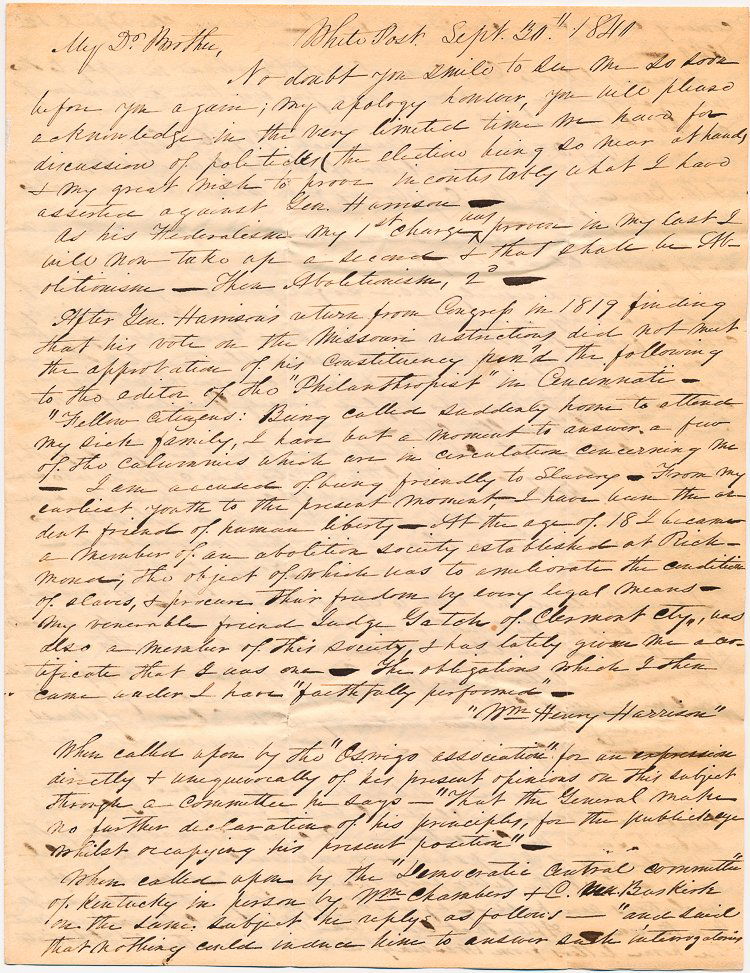 White Post. Sept. 30.th 1840
My Dr. Brother,
No doubt you smile to see me so soon
before you again; my apology however, you will please
acknowledge in the very limited time we have for
discussion of politicks (the election being so near at hand)
& my great wish to prove incontestably what I have
asserted against Gen. Harrison —
As his Federalism my 1st charge was proven in my last I
will now take up a second & that shall be Ab-
olitionism — Then Abolitionism, 2d —
After Gen. Harrison's return from Congress in 1819 finding
that his vote on the Missouri restrictions did not meet
the approbation of his constituency pen'd the following
to the editor of the "Philanthropist" in Cincinnati —
"Fellow Citizens: Being called suddenly home to attend
my sick family, I have but a moment to answer a few
of the calumnies which are in circulation concerning me
— I am accused of being friendly to Slavery — From my
earliest youth to the present moment I have been the ar-
dent friend of human liberty — At the age of 18 I became
a member of an abolition society established at Rich-
mond; the object of which was to ameliorate the condition
of slaves, & procure their freedom by every legal means —
My venerable friend Judge Gatch of Clermont Cty., was
also a member of this society, & has lately given me a cer-
tificate that I was one — The obligations which I then
came under I have "faithfully performed" —
"Wm Henry Harrison"
When called upon by the "Oswego association" for an expression
directly & unequivocally of his present opinions on this subject
through a committee he says — "That the General make
no further declaration of his principles, for the public eye
whilst occupying his present position" —
When called upon by the "Democratic Central committee"
of Kentucky in person by Wm Chambers & C. Buskirk
on the same subject he reply's as follows — "and said
that nothing could induce him to answer such interrogatories